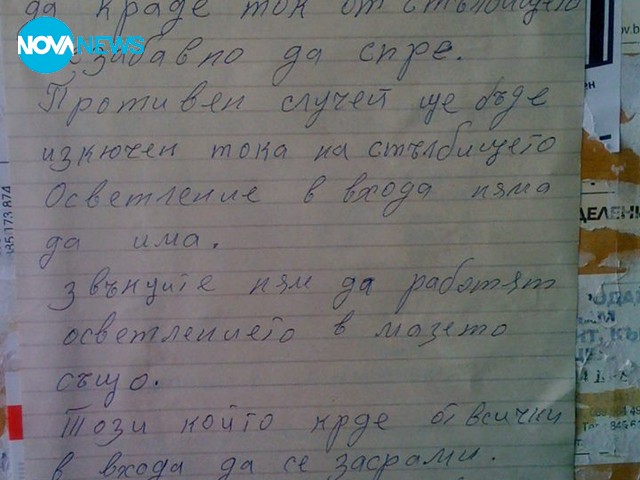 да краде ток от стълбището
NOVANEWS
незабавно да спре.
Противен случей ще бъде
изкючен тока на стълбището
Осветление в входа няма
да има.
звънците ням да работят
осветлението в мазето
също.
Този който крде от всички
в входа да се засрами.
ДЕЛЕНИ